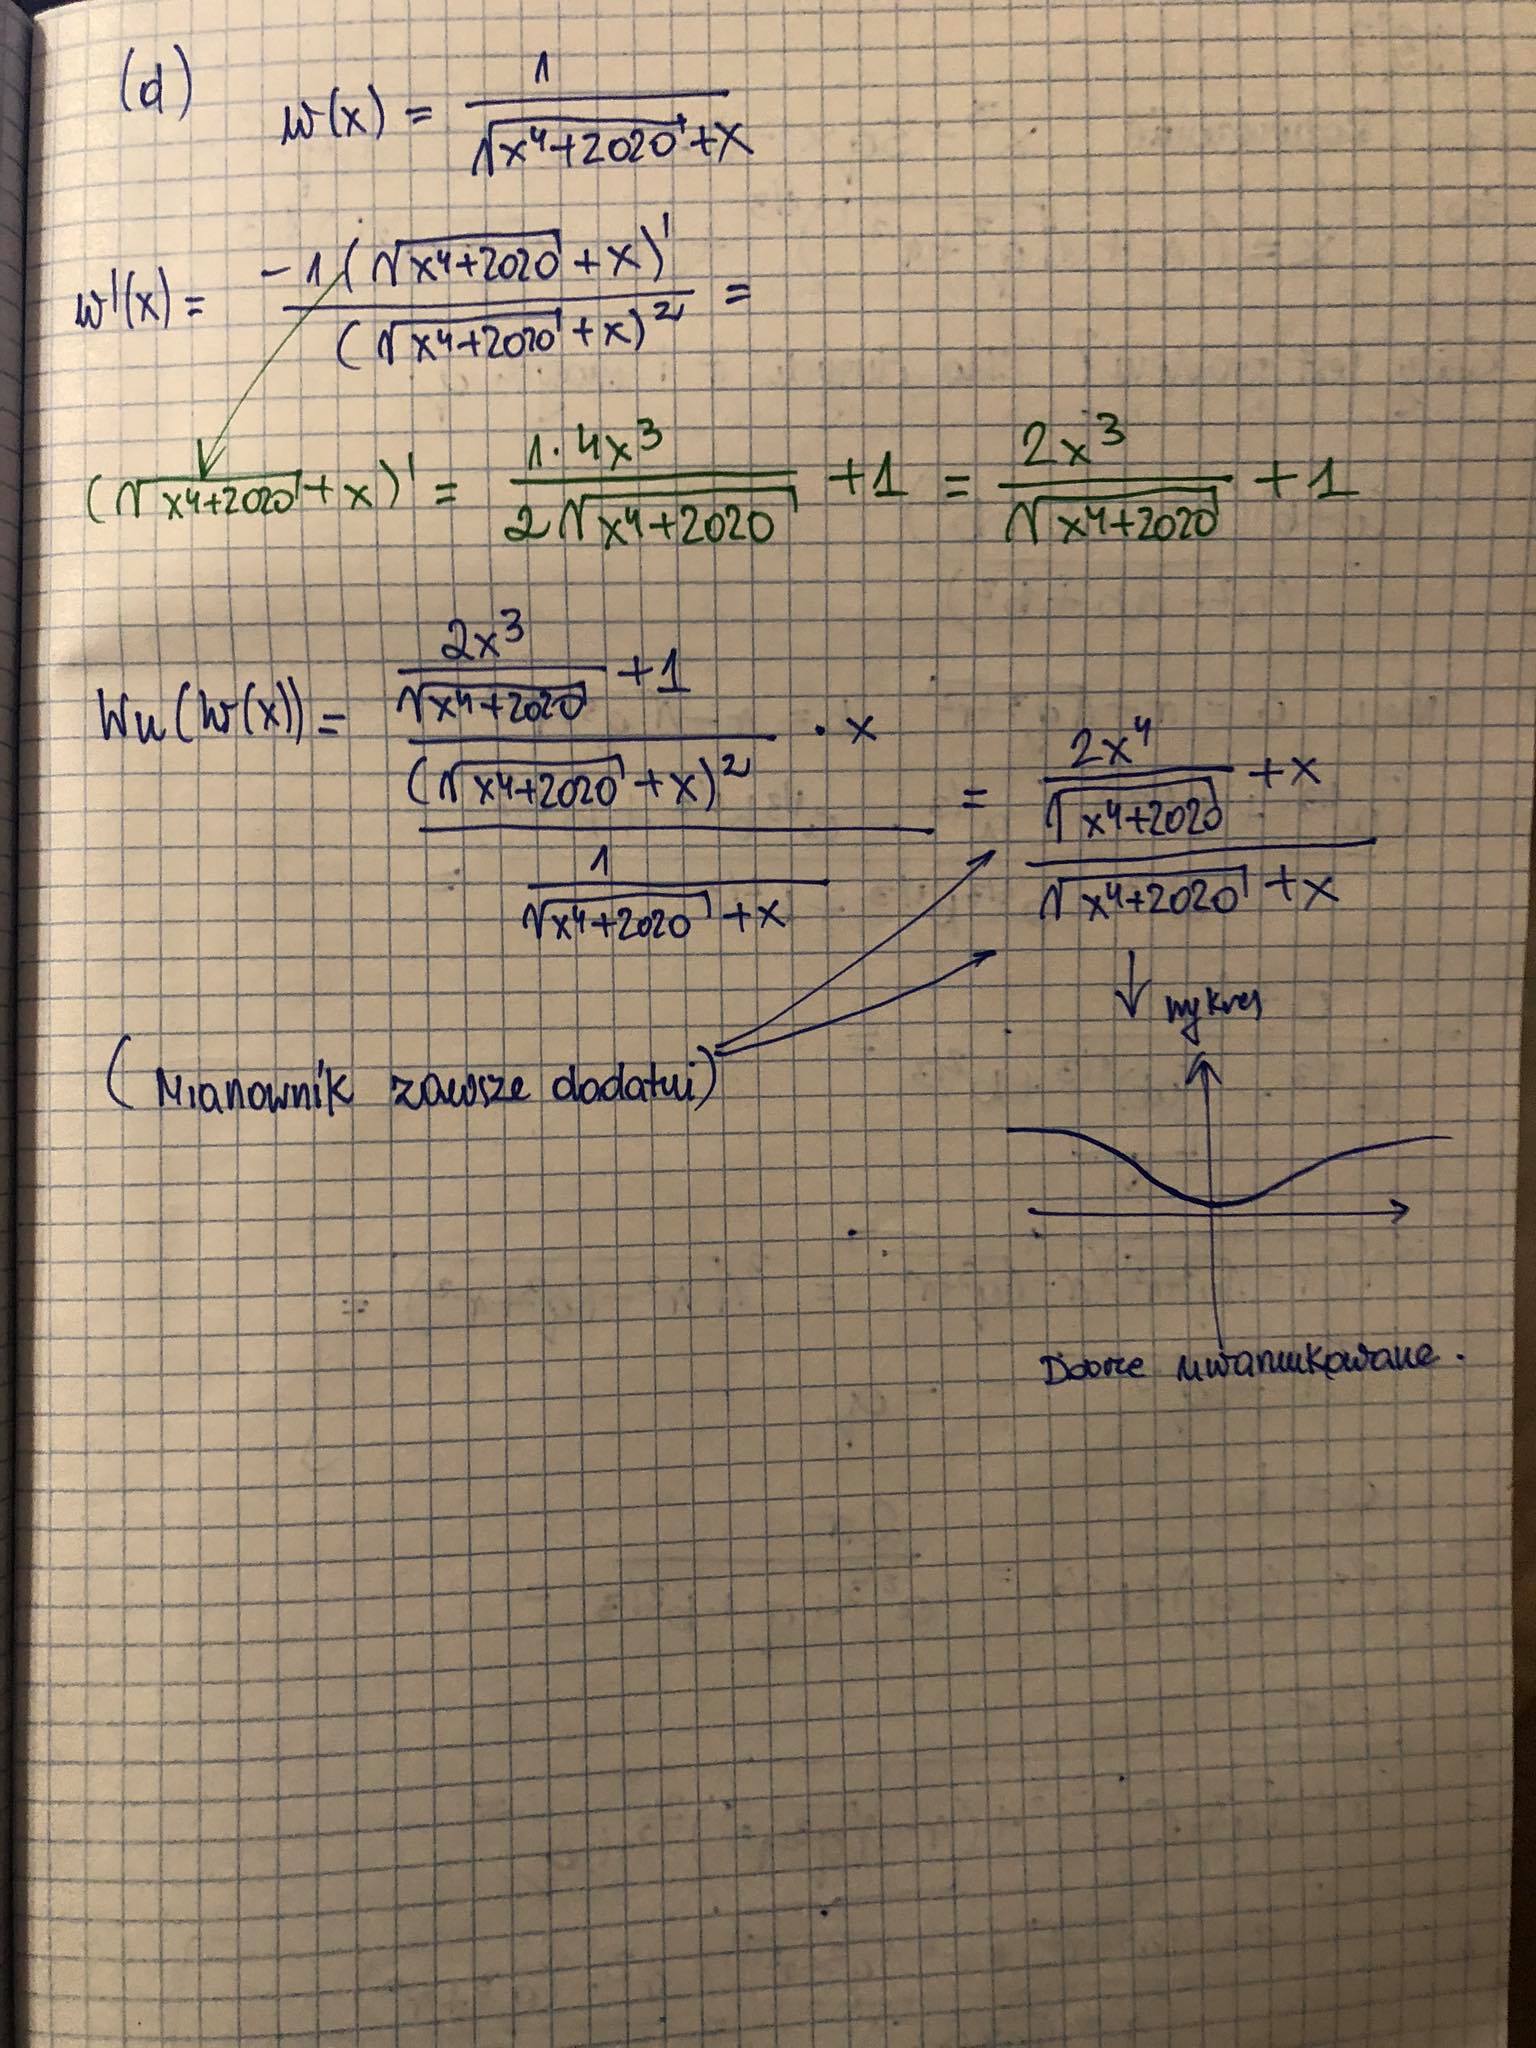 (d) w(x) = 1 / (√(x⁴+2020) + x)
w'(x) = -1(√(x⁴+2020) + x)' / (√(x⁴+2020) + x)² =
(√(x⁴+2020) + x)' = 1·4x³ / (2√(x⁴+2020)) + 1 = 2x³ / √(x⁴+2020) + 1
Wu(w(x)) = (((2x³ / √(x⁴+2020)) + 1) / (√(x⁴+2020) + x)² · x) / (1 / (√(x⁴+2020) + x)) = ((2x⁴ / √(x⁴+2020)) + x) / (√(x⁴+2020) + x)
↓ wykres
(Mianownik zawsze dodatni)
Dobrze uwarunkowane.